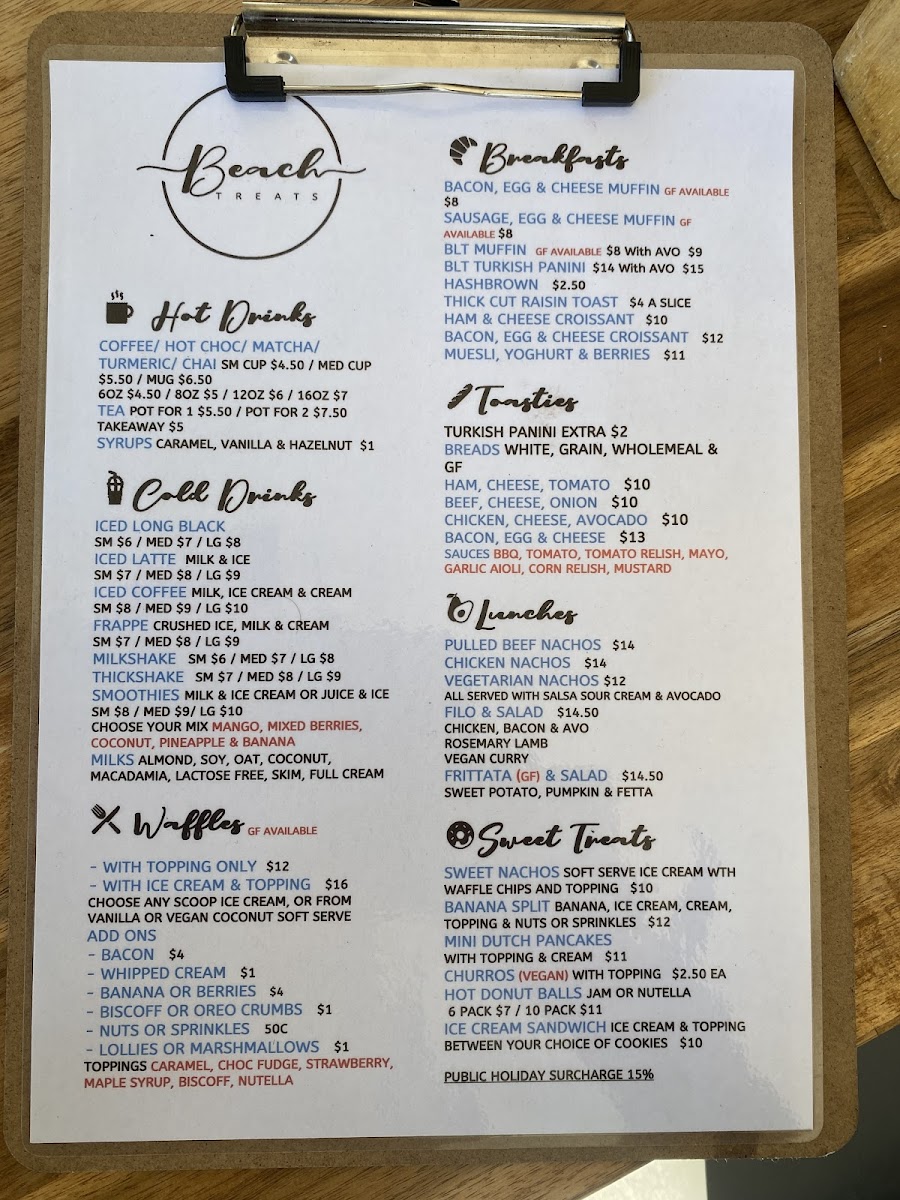 Beach
TREATS
Hot Drinks
COFFEE/ HOT CHOC/ MATCHA/
TURMERIC/ CHAI SM CUP $4.50 / MED CUP
$5.50 / MUG $6.50
6OZ $4.50 / 8OZ $5 / 12OZ $6 / 16OZ $7
TEA POT FOR 1 $5.50 / POT FOR 2 $7.50
TAKEAWAY $5
SYRUPS CARAMEL, VANILLA & HAZELNUT $1
Cold Drinks
ICED LONG BLACK
SM $6 / MED $7 / LG $8
ICED LATTE MILK & ICE
SM $7 / MED $8 / LG $9
ICED COFFEE MILK, ICE CREAM & CREAM
SM $8 / MED $9 / LG $10
FRAPPE CRUSHED ICE, MILK & CREAM
SM $7 / MED $8 / LG $9
MILKSHAKE SM $6 / MED $7 / LG $8
THICKSHAKE SM $7 / MED $8 / LG $9
SMOOTHIES MILK & ICE CREAM OR JUICE & ICE
SM $8 / MED $9/ LG $10
CHOOSE YOUR MIX MANGO, MIXED BERRIES,
COCONUT, PINEAPPLE & BANANA
MILKS ALMOND, SOY, OAT, COCONUT,
MACADAMIA, LACTOSE FREE, SKIM, FULL CREAM
Waffles GF AVAILABLE
- WITH TOPPING ONLY $12
- WITH ICE CREAM & TOPPING $16
CHOOSE ANY SCOOP ICE CREAM, OR FROM
VANILLA OR VEGAN COCONUT SOFT SERVE
ADD ONS
- BACON $4
- WHIPPED CREAM $1
- BANANA OR BERRIES $4
- BISCOFF OR OREO CRUMBS $1
- NUTS OR SPRINKLES 50C
- LOLLIES OR MARSHMALLOWS $1
TOPPINGS CARAMEL, CHOC FUDGE, STRAWBERRY,
MAPLE SYRUP, BISCOFF, NUTELLA
Breakfasts
BACON, EGG & CHEESE MUFFIN GF AVAILABLE
$8
SAUSAGE, EGG & CHEESE MUFFIN GF
AVAILABLE $8
BLT MUFFIN GF AVAILABLE $8 With AVO $9
BLT TURKISH PANINI $14 With AVO $15
HASHBROWN $2.50
THICK CUT RAISIN TOAST $4 A SLICE
HAM & CHEESE CROISSANT $10
BACON, EGG & CHEESE CROISSANT $12
MUESLI, YOGHURT & BERRIES $11
Toasties
TURKISH PANINI EXTRA $2
BREADS WHITE, GRAIN, WHOLEMEAL &
GF
HAM, CHEESE, TOMATO $10
BEEF, CHEESE, ONION $10
CHICKEN, CHEESE, AVOCADO $10
BACON, EGG & CHEESE $13
SAUCES BBQ, TOMATO, TOMATO RELISH, MAYO,
GARLIC AIOLI, CORN RELISH, MUSTARD
Lunches
PULLED BEEF NACHOS $14
CHICKEN NACHOS $14
VEGETARIAN NACHOS $12
ALL SERVED WITH SALSA SOUR CREAM & AVOCADO
FILO & SALAD $14.50
CHICKEN, BACON & AVO
ROSEMARY LAMB
VEGAN CURRY
FRITTATA (GF) & SALAD $14.50
SWEET POTATO, PUMPKIN & FETTA
Sweet Treats
SWEET NACHOS SOFT SERVE ICE CREAM WTH
WAFFLE CHIPS AND TOPPING $10
BANANA SPLIT BANANA, ICE CREAM, CREAM,
TOPPING & NUTS OR SPRINKLES $12
MINI DUTCH PANCAKES
WITH TOPPING & CREAM $11
CHURROS (VEGAN) WITH TOPPING $2.50 EA
HOT DONUT BALLS JAM OR NUTELLA
6 PACK $7 / 10 PACK $11
ICE CREAM SANDWICH ICE CREAM & TOPPING
BETWEEN YOUR CHOICE OF COOKIES $10
PUBLIC HOLIDAY SURCHARGE 15%